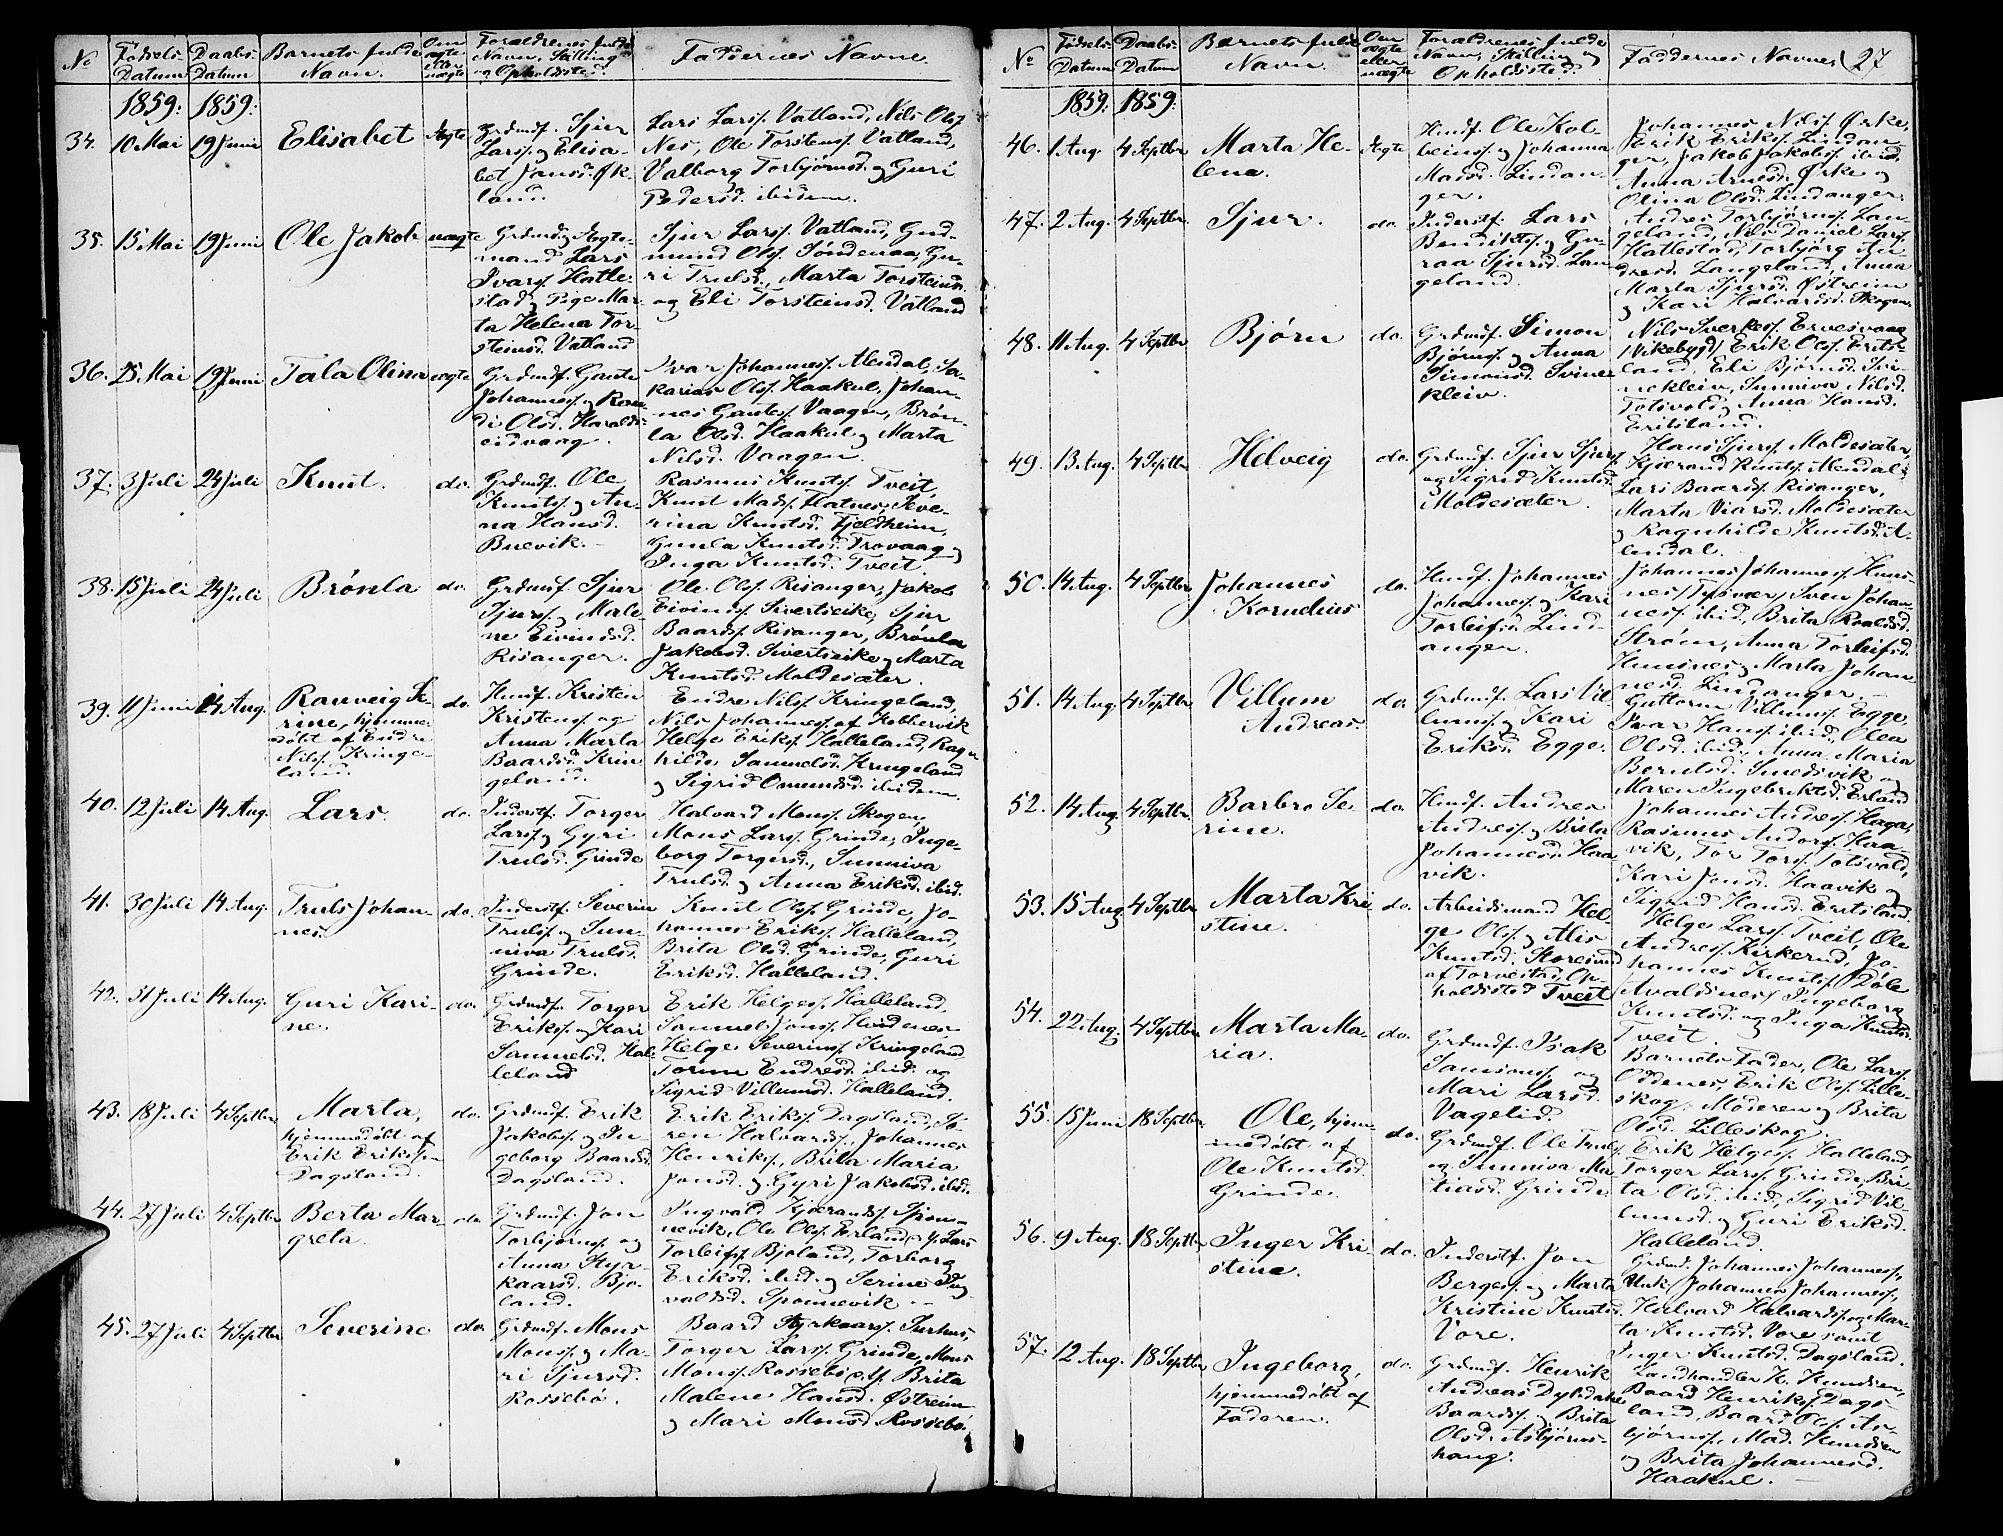 No
Fødsels-
Datum
Daabs-
Datum
Barnets fulde
Navn.
Om
ægte
eller
uægte
Forældrenes fulde
Navn, Stilling
og Opholdssted.
Faddernes Navne
1859: 1859:
34. 10 Mai 19 Juni Elisabet Ægte
Grdmdf. Sjur
Larss. og Elisa-
bet Jansd. Øk-
land.
Lars Larss. Vatland, Nils Olss.
Nes, Ole Torstenss. Vatland,
Valborg Torbjørnsd. og Guri
Pedersd. ibidem.
35. 15 Mai 19 Juni Ole Jakob uægte
Grdmd. og Ægte-
mand Lars
Ivars. Hatle-
stad og Pige Mar-
ta Helena Tor-
steinsd. Vatland
Sjur Larss. Vatland, Gud-
mund Olss. Søndenaa, Gu-
ri Trulsd., Marta Torsteinsd.
og Eli Torsteinsd. Vatland
36. 25 Mai 19 Juni Tala Olina ægte
Grdmdf. Gaute
Johanness. og Ran-
di Olsd. Haralds-
eidvaag.
Ivar Johanness. Alendal, Sa-
karias Olss. Haakul, Johan-
nes Gautes. Vaagen, Brøn-
la Olsd. Haakul og Marta
Nilsd. Vaagen.
37. 3 Juli 24 Juli Knut. do.
Grdmdf. Ole
Knuts. og An-
na Hansd.
Buevik.
Rasmus Knuts. Tveit,
Knut Mads. Hatnes, Seve-
rina Knutsd. Fjeldheim,
Gunla Knutsd. Trovaag og
Inga Knutsd. Tveit
38. 15 Juli 24 Juli Brønla do.
Grdmdf. Sjur
Sjurs. og Male-
ne Eivindsd.
Risanger.
Ole Olss. Risanger, Jakob
Eivinds. Sivertseike, Sjur
Baards. Risanger, Brønla
Jakobsd. Sivertseike og Marta
Knutsd. Moldesæter.
39. 11 Juni 14 Aug. Ranveig Se-
rine, hjemme-
døbt af Endre
Nilss. Kringe-
land.
do.
Husmf. Kristen
Kristens. og
Anna Marta
Baardsd. Krin
geland.
Endre Nilss. Kringeland,
Nils Johanness. af Kobbervik
Helge Eriks. Halleland, Ragn
hilde Samuelsd. Kringeland
og Sigrid Omundsd. ibidem.
40. 12 Juli 14 Aug. Lars do.
Inderstf. Torger
Larss. og Gyri
Trulsd. Grinde
Halvard Monss. Skogen,
Mons Larss. Grinde, Inge-
borg Torgersd., Sunniva
Trulsd. og Anna Eriksd. ibid.
41. 30 Juli 14 Aug. Truls Johan-
nes. do.
Inderstf. Severin
Truls. og Sun-
niva Trulsd.
Grinde.
Knut Olss. Grinde, Jo-
hannes Eriks. Halleland,
Brita Olsd. Grinde, Guri
Eriksd. Halleland.
42. 31 Juli 14 Aug. Guri Kari-
ne. do.
Grdmdf. Torger
Eriks. og Kari
Samuelsd. Hal-
leland
Erik Helges. Halleland,
Samuel Jons. Hvidenes
Helge Severins. Kringeland
Torine Endresd. ibid. og
Sigrid Villumsd. Halleland.
43. 18 Juli 4 Septbr Marta,
hjemmedøbt af
Erik Eriksen
Dagsland.
do.
Grdmdf. Erik
Jakobs. og In-
geborg Baardsd.
Dagsland.
Erik Eriks. Dagsland, Sø-
ren Halvards., Johannes
Henriks., Brita Maria
Jonsd. og Gyri Jakobsd. ibid.
44. 27 Juli 4 Septbr Berta Mar-
greta. do.
Grdmdf. Jon
Torbjørns. og
Anna Styr-
kaarsd. Bjo-
land.
Ingvald Kjærands. Spon-
nevik, Ole Olss. Erland, Lars
Torbjss. Bjoland, Torborg
Eriksd. ibid. og Serine Ing-
valdsd. Sponnevik.
45. 27 Juli 4 Septbr Severine do.
Grdmdf. Mons
Monss. og Ma-
ri Sjursd.
Rossebø.
Baard Styrkaars. Surhus,
Torger Larss. Grinde, Mons
Monss. Rossebø, Brita
Malene Hansd. Østreim
og Mari Monsd. Rossebø.
No
Fødsels-
Datum
Daabs-
Datum
Barnets fulde
Navn.
Om
ægte
eller
uægte
Forældrenes fulde
Navn, Stilling og
Opholdssted.
Faddernes Navne,
27
1859. 1859.
46. 1 Aug. 4 Septbr Marta He-
lena. Ægte
Husmf. Ole Kol-
beinss. og Johanna
Madsd. Lindan-
ger.
Johannes Nilss. Ørke,
Erik Eriks. Lindan-
ger, Jakob Jakobs. ibid.
Anna Arnesd. Ørke og
Olina Olsd. Lindanger.
47. 2 Aug. 4 Septbr Sjur. do.
Inderstf. Lars
Bendikts. og Gu-
raa Sjursd. Lan-
geland.
Andres Torbjørns. Lan-
geland, Nils Daniel Larss.
Hatlestad, Torbjørg An-
dresd. Langeland, Anna
Marta Sjursd. Østreim
og Kari Halvardsd. Skogen.
48. 11 Aug. 4 Septbr Bjørn do.
Grdmdf. Simon
Bjørns. og Anna
Simonsd. Svine
kleiv.
Nils Sverkes. Ervesvaag
(Vikebygd) Erik Olss. Erits-
land, Eli Bjørnsd. Svi-
nekleiv, Sunniva Nilsd.
Totsvold og Anna Hansd.
Eritsland.
49. 13 Aug. 4 Septbr Helveig do.
Grdmdf. Sjur Sjurs.
og Sigrid Knutsd.
Moldesæter
Hans Sjurs. Moldesæter,
Kjærand Knuts. Alendal,
Lars Baards. Risanger,
Marta Viarsd. Moldesæter
og Ragnhilde Knutsd. A-
lendal.
50. 14 Aug. 4 Septbr Johannes
Kornelius do.
Husmf. Johannes
Johanness. og Kari
Torleifsd. Lind-
anger.
Johannes Johanness. Hus-
nes (Tysvær) Sven Johan-
ness. ibid., Brita Roaldsd.
Strøm, Anna Torleifsd.
Husnes og Marta Johan-
nesd. Lindanger.
51. 14 Aug. 4 Septbr Villum
Andreas. do.
Grdmdf. Lars Vil-
lums. og Kari
Eriksd. Egge.
Guttorm Villums. Egge,
Ivar Hans. ibid., Olea
Olsd. ibid., Anna Maria
Berntsd. Smedsvik og
Maren Ingebriktsd. Erland
52. 14 Aug. 4 Septbr Barbro Se-
rine. do.
Husmf. Andreas
Andress. og Brita
Johannesd. Haa
vik.
Johannes Andress. Haga,
Rasmus Andors. Haa-
vik, Tor Torss. Totsvold,
Kari Jonsd. Haavik og
Sigrid Hansd. Eritsland.
53. 15 Aug 4 Septbr Marta Kri
stine. do.
Arbeidsmand Hel-
ge Olss. og Alis
Knutsd. Storesund
af Torvestad, Op-
holdssted Tveit
Helge Larss. Tveit, Ole
Andress. Kirkerud, Jo-
hannes Knuts. Døle
(Avaldsnes) Ingeborg
Knutsd. og Inga Knutsd.
Tveit.
54. 22 Aug. 4 Septbr Marta Ma-
ria. do.
Grdmdf. Isak
Samsons. og
Mari Larsd.
Vagelid.
Barnets Fader, Ole Larss.
Oddenes, Erik Olss. Lille-
skog, Moderen og Brita
Olsd. Lilleskog.
55. 15 Juni 18 Septbr Ole, hjem-
medøbt af
Ole Knuts.
Grinde.
do.
Grdmdf. Ole Truls.
og Sunniva Ma-
tiasd. Grinde.
Erik Helges. Halleland,
Torger Larss. Grinde, Bri-
ta Olsd. ibid., Sigrid Vil-
lumsd. og Guri Eriksd.
Halleland.
56. 9 Aug. 18 Septbr Inger Kri
stine. do.
Inderstf. Jon
Berges. og Marta
Kristine Knutsd.
Vore.
Grdmd. Johannes Johanness.
Unk. Johannes Johanness.,
Halvard Halvards. og Mar-
ta Knutsd. Vore samt
Inger Knutsd. Dagsland.
57. 12 Aug. 18 Septbr Ingeborg,
hjemmedøbt af
Faderen.
do.
Grdmdf. Henrik
Andreas Dybdahl
Baards. og Brita
Olsd. Asbjørns-
haug.
Landhandler K. Knudsen,
Baard Henriks. Dags-
land, Baard Olss. As-
bjørns., Mad. Knudsen
og Brita Johannesd.
Haakul.